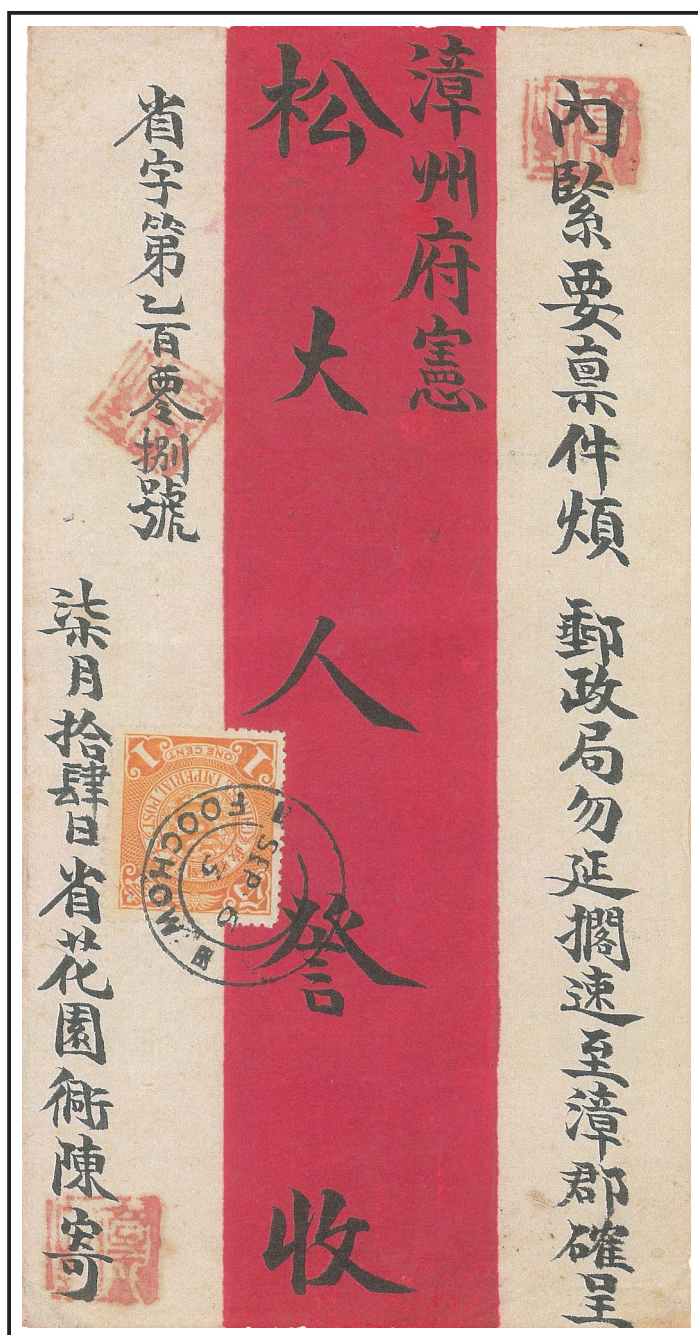 內緊要稟件煩 郵政局勿延擱速至漳郡確呈
漳州府憲
松大人詧收
省字第乙百零捌號
柒月拾肆日省花園 陳寄
1 1
ONE CENT
IMPERIAL POST
FOOCHOW
SEP
5